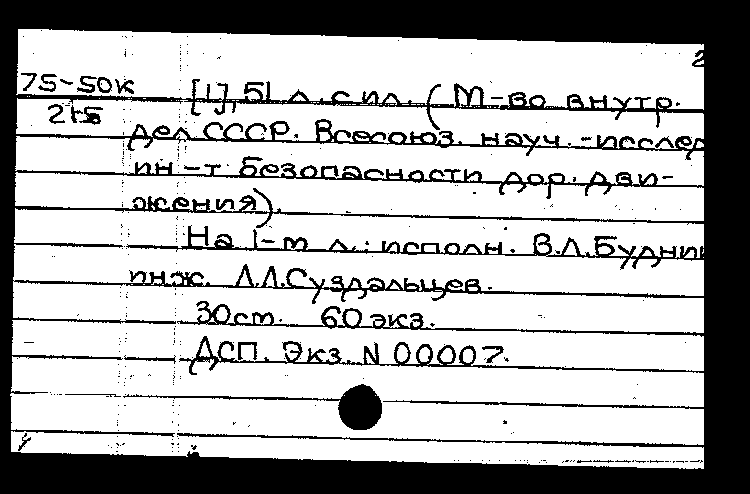 2
75-50к [1], 51 л. с ил. (М-во внутр.
дел СССР. Всесоюз. науч.-исслед
ин-т безопасности дор. дви-
жения).
На 1-м л.: исполн. В.Л.Будни
инж. Л.Л.Суздальцев.
30см. 60 экз.
ДСП. Экз. N 00007.